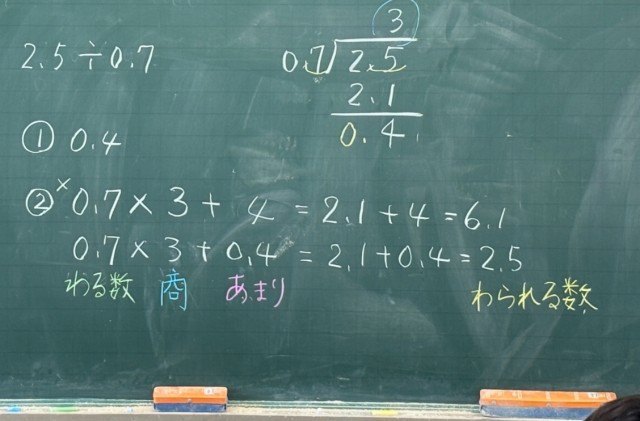 2.5÷0.7
3
0.7)2.5
2.1
0.4
① 0.4
②×0.7×3+4=2.1+4=6.1
0.7×3+0.4=2.1+0.4=2.5
わる数 商 あまり わられる数